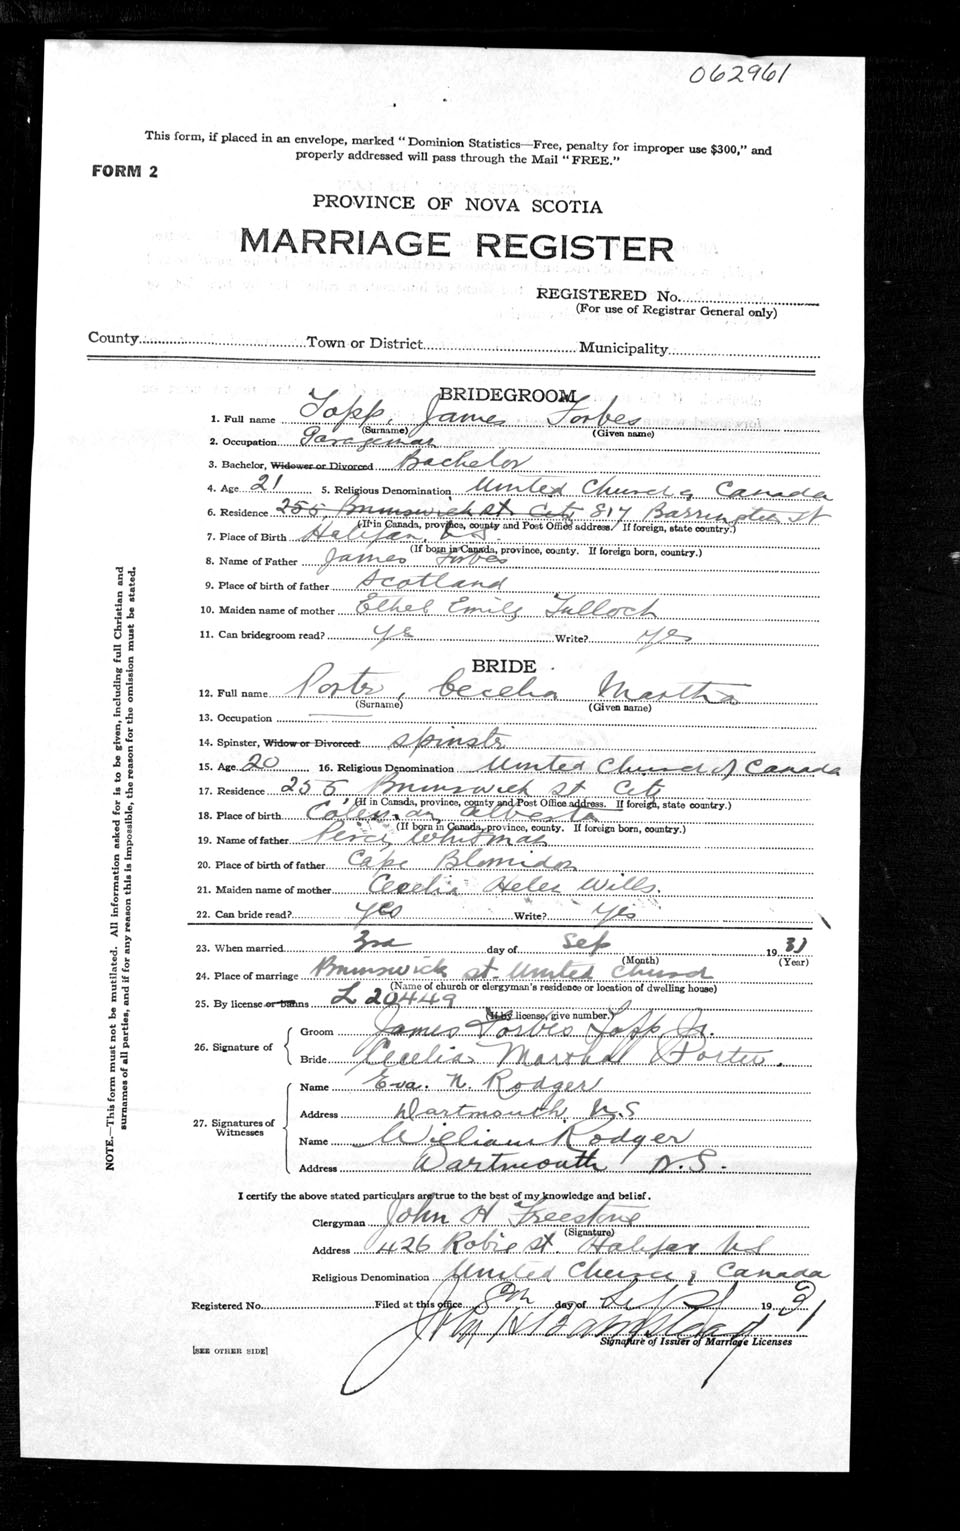 062961
This form, if placed in an envelope, marked "Dominion Statistics—Free, penalty for improper use $300," and
properly addressed will pass through the Mail "FREE."
FORM 2
PROVINCE OF NOVA SCOTIA
MARRIAGE REGISTER
REGISTERED No.
(For use of Registrar General only)
County Town or District Municipality
BRIDEGROOM
1. Full name Topp, James Forbes
(Surname) (Given name)
2. Occupation
3. Bachelor, Widower or Divorced Bachelor
4. Age 21 5. Religious Denomination United Church of Canada
6. Residence 255 Brunswick St City 817 Barrington St
(If in Canada, province, county and Post Office address. If foreign, state country.)
7. Place of Birth Halifax, N.S.
(If born in Canada, province, county. If foreign born, country.)
8. Name of Father James Forbes
9. Place of birth of father Scotland
10. Maiden name of mother Ethel Emily Tulloch
11. Can bridegroom read? yes Write? yes
BRIDE
12. Full name Porter, Cecelia Martha
(Surname) (Given name)
13. Occupation
14. Spinster, Widow or Divorced spinster
15. Age 20 16. Religious Denomination United Church of Canada
17. Residence 255 Brunswick St City
(If in Canada, province, county and Post Office address. If foreign, state country.)
18. Place of birth Alberta
(If born in Canada, province, county. If foreign born, country.)
19. Name of father Percy Whitman
20. Place of birth of father Cape Blomidon
21. Maiden name of mother Cecelia Helen Wills.
22. Can bride read? yes Write? yes
23. When married 3rd day of Sep 1931
(Month) (Year)
24. Place of marriage Brunswick St. United Church
(Name of church or clergyman's residence or location of dwelling house)
25. By license or banns L 20449
(If by license, give number.)
26. Signature of
Groom James Forbes Topp Jr.
Bride Cecelia Porter.
27. Signatures of Witnesses
Name Eva. N. Rodger
Address Dartmouth, N.S
Name William Rodger
Address Dartmouth N.S.
I certify the above stated particulars are true to the best of my knowledge and belief.
Clergyman John H Freestone
(Signature)
Address 426 Robie St. Halifax NS
Religious Denomination United Church of Canada
Registered No. Filed at this office 8th day of Sept 1931
John
Signature of Issuer of Marriage Licenses
[SEE OTHER SIDE]
NOTE.—This form must not be mutilated. All information asked for is to be given, including full Christian and
surnames of all parties, and if for any reason this is impossible, the reason for the omission must be stated.